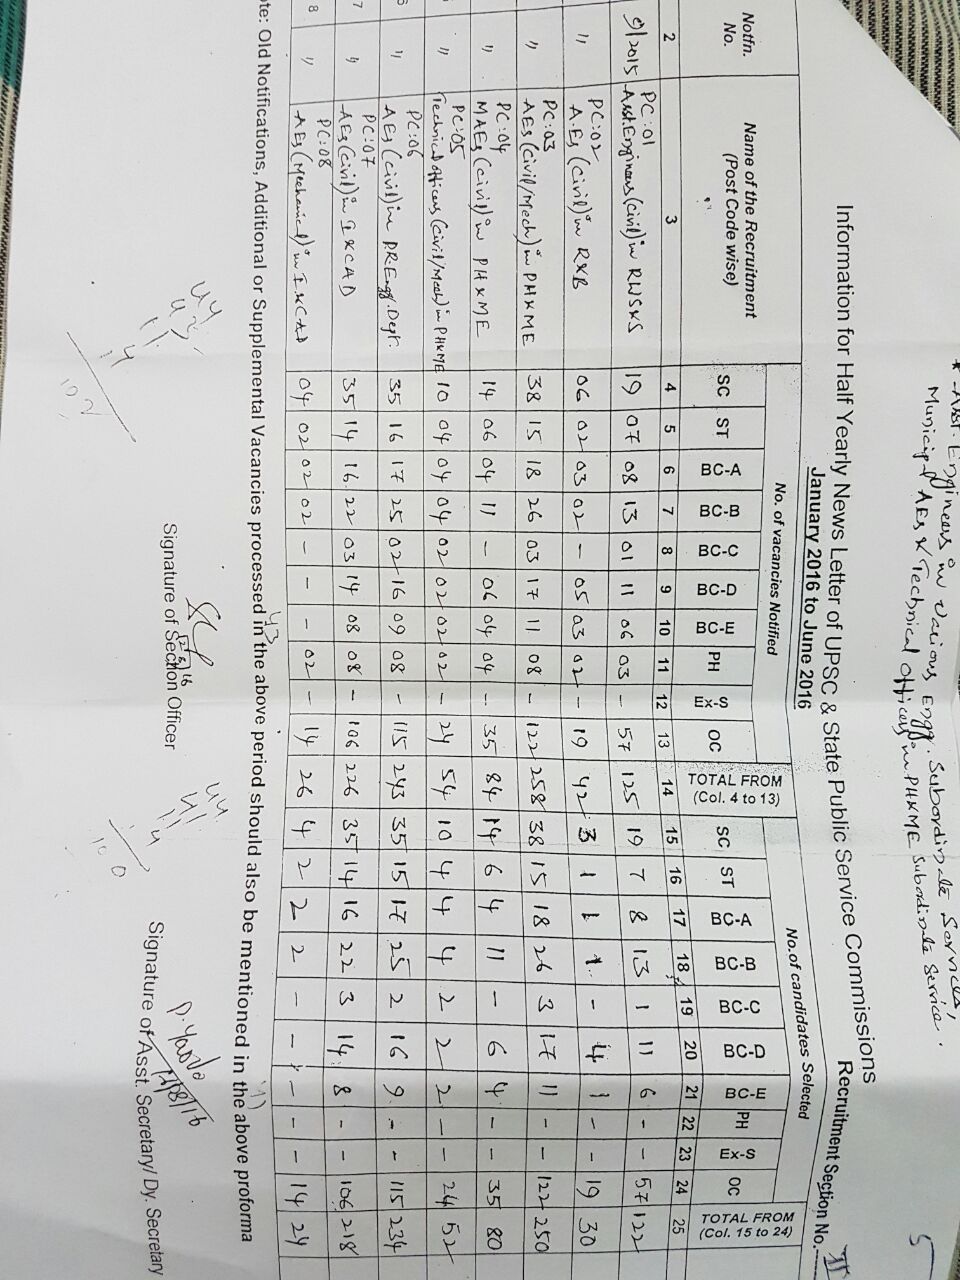 5
* Asst. Engineers in various Engg. Subordinate Services,
Municipal AEs & Technical Officers in PH&ME Subordinate Service.
Information for Half Yearly News Letter of UPSC & State Public Service Commissions
January 2016 to June 2016
Recruitment Section No.
Notifn. No. | Name of the Recruitment (Post Code wise) | No. of vacancies Notified | No.of candidates Selected
SC | ST | BC-A | BC-B | BC-C | BC-D | BC-E | PH | Ex-S | OC | TOTAL FROM (Col. 4 to 13) | SC | ST | BC-A | BC-B | BC-C | BC-D | BC-E | PH | Ex-S | OC | TOTAL FROM (Col. 15 to 24)
2 | 3 | 4 | 5 | 6 | 7 | 8 | 9 | 10 | 11 | 12 | 13 | 14 | 15 | 16 | 17 | 18 | 19 | 20 | 21 | 22 | 23 | 24 | 25
9/2015 | PC:01 Asst.Engineers (civil) in RWS&S | 19 | 07 | 08 | 13 | 01 | 11 | 06 | 03 | - | 57 | 125 | 19 | 7 | 8 | 13 | 1 | 11 | 6 | - | - | 57 | 122
" | PC:02 A.Es (Civil) in R&B | 06 | 02 | 03 | 02 | - | 05 | 03 | 02 | - | 19 | 42 | 3 | 1 | 1 | 1 | - | 4 | 1 | - | - | 19 | 30
" | PC:03 AEs (Civil/Mech) in PH&ME | 38 | 15 | 18 | 26 | 03 | 17 | 11 | 08 | - | 122 | 258 | 38 | 15 | 18 | 26 | 3 | 17 | 11 | - | - | 122 | 250
" | PC:04 MAEs (civil) in PH&ME | 14 | 06 | 04 | 11 | - | 06 | 04 | 04 | - | 35 | 84 | 14 | 6 | 4 | 11 | - | 6 | 4 | - | - | 35 | 80
" | PC:05 Technical officers (Civil/Mech) in PH&ME | 10 | 04 | 04 | 04 | 02 | 02 | 02 | 02 | - | 24 | 54 | 10 | 4 | 4 | 4 | 2 | 2 | 2 | - | - | 24 | 52
6 | " | PC:06 AEs (civil) in P.R.Engg. Dept. | 35 | 16 | 17 | 25 | 02 | 16 | 09 | 08 | - | 115 | 243 | 35 | 15 | 17 | 25 | 2 | 16 | 9 | - | - | 115 | 234
7 | " | PC:07 AEs (civil) in I&CAD | 35 | 14 | 16 | 22 | 03 | 14 | 08 | 08 | - | 106 | 226 | 35 | 14 | 16 | 22 | 3 | 14 | 8 | - | - | 106 | 218
8 | " | PC:08 AEs (Mechanical) in I&CAD | 04 | 02 | 02 | 02 | - | - | - | 02 | - | 14 | 26 | 4 | 2 | 2 | 2 | - | - | - | - | - | 14 | 24
ote: Old Notifications, Additional or Supplemental Vacancies processed in the above period should also be mentioned in the above proforma
102
100
Signature of Section Officer
Signature of Asst. Secretary/ Dy. Secretary